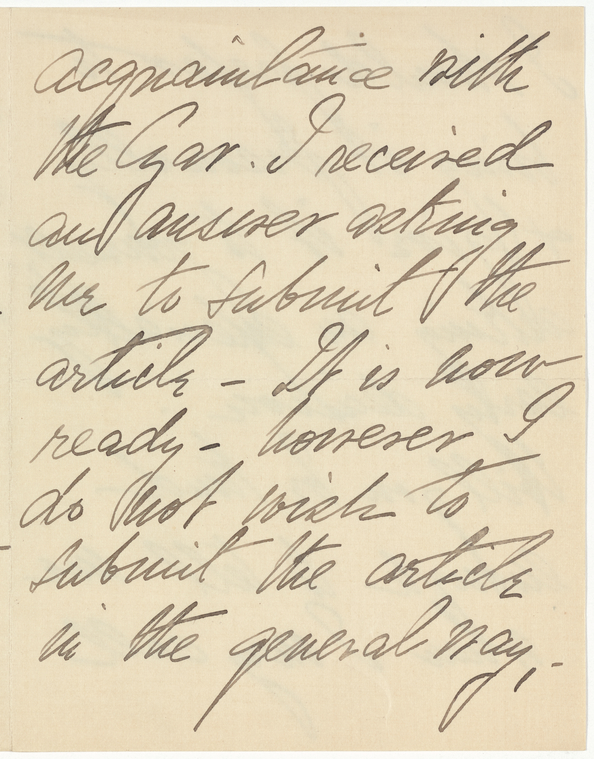 acquaintance with
the Czar. I received
an answer asking
me to submit the
article - It is now
ready - however I
do not wish to
submit the article
in the general way, -